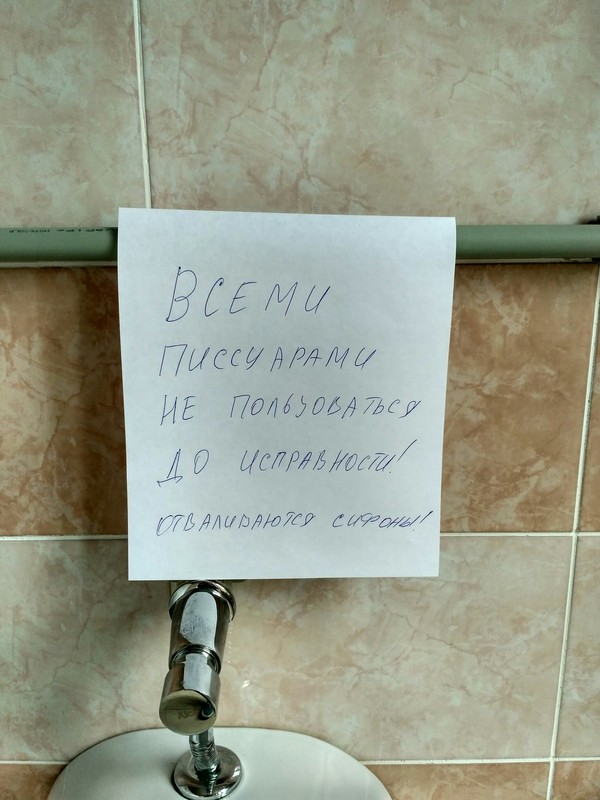 ВСЕМИ
ПИССУАРАМИ
НЕ ПОЛЬЗОВАТЬСЯ
ДО ИСПРАВНОСТИ!
ОТВАЛИВАЮТСЯ СИФОНЫ!